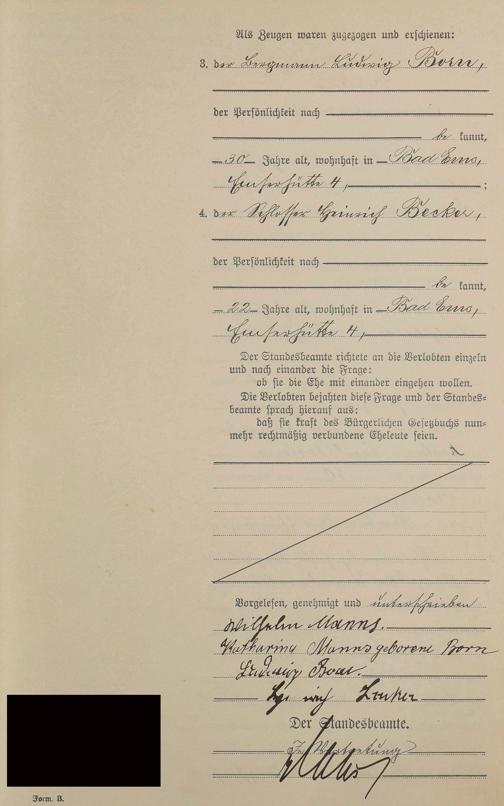 Als Zeugen waren zugezogen und erschienen:
3. der Bergmann Ludwig Born,
der Persönlichkeit nach
be kannt,
30 Jahre alt, wohnhaft in Bad Ems,
Emserhütte 4, ;
4. der Schlosser Heinrich Becker,
der Persönlichkeit nach
be kannt,
22 Jahre alt, wohnhaft in Bad Ems,
Emserhütte 4,
Der Standesbeamte richtete an die Verlobten einzeln
und nach einander die Frage:
ob sie die Ehe mit einander eingehen wollen.
Die Verlobten bejahten diese Frage und der Standes-
beamte sprach hierauf aus:
daß sie kraft des Bürgerlichen Gesetzbuchs nun-
mehr rechtmäßig verbundene Eheleute seien.
Vorgelesen, genehmigt und unterschrieben
Wilhelm Manns.
Katharina Manns geborene Born
Ludwig Born.
Der Standesbeamte.
In Vertretung
Form. B.